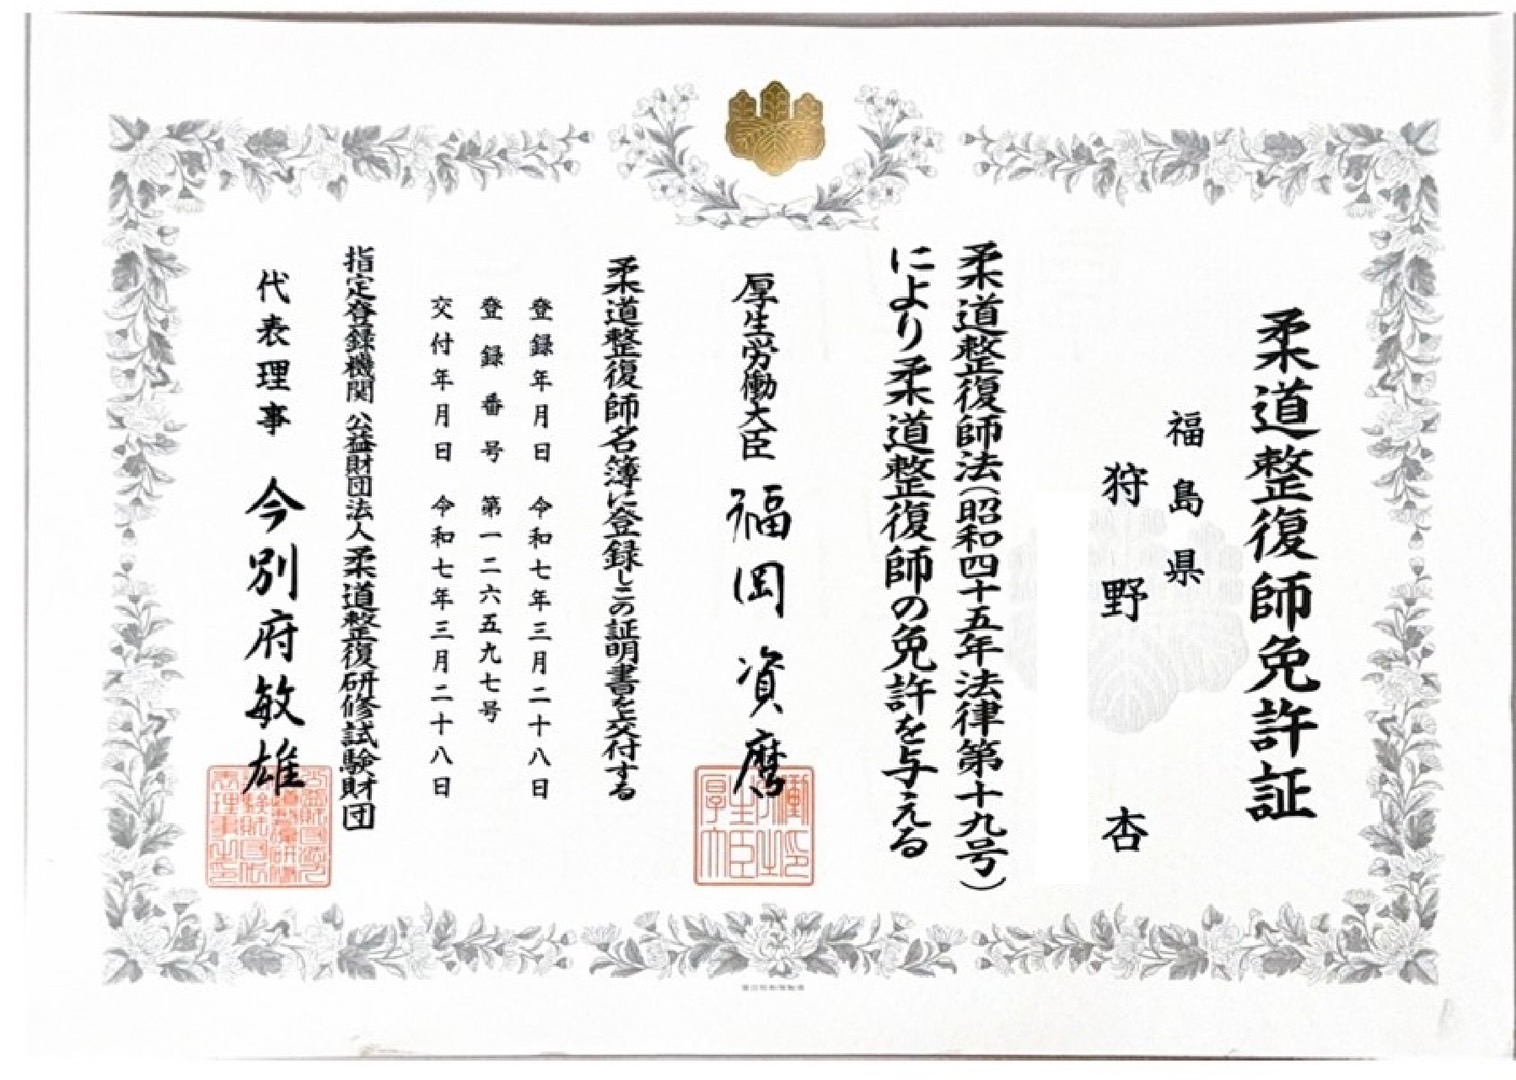 柔道整復師免許証
福島県
狩野 杏
柔道整復師法(昭和四十五年法律第十九号)
により柔道整復師の免許を与える
厚生労働大臣 福岡資麿
柔道整復師名簿に登録しこの証明書を交付する
登録年月日 令和七年三月二十八日
登録番号 第一二六五九七号
交付年月日 令和七年三月二十八日
指定登録機関 公益財団法人柔道整復研修試験財団
代表理事 今別府敏雄